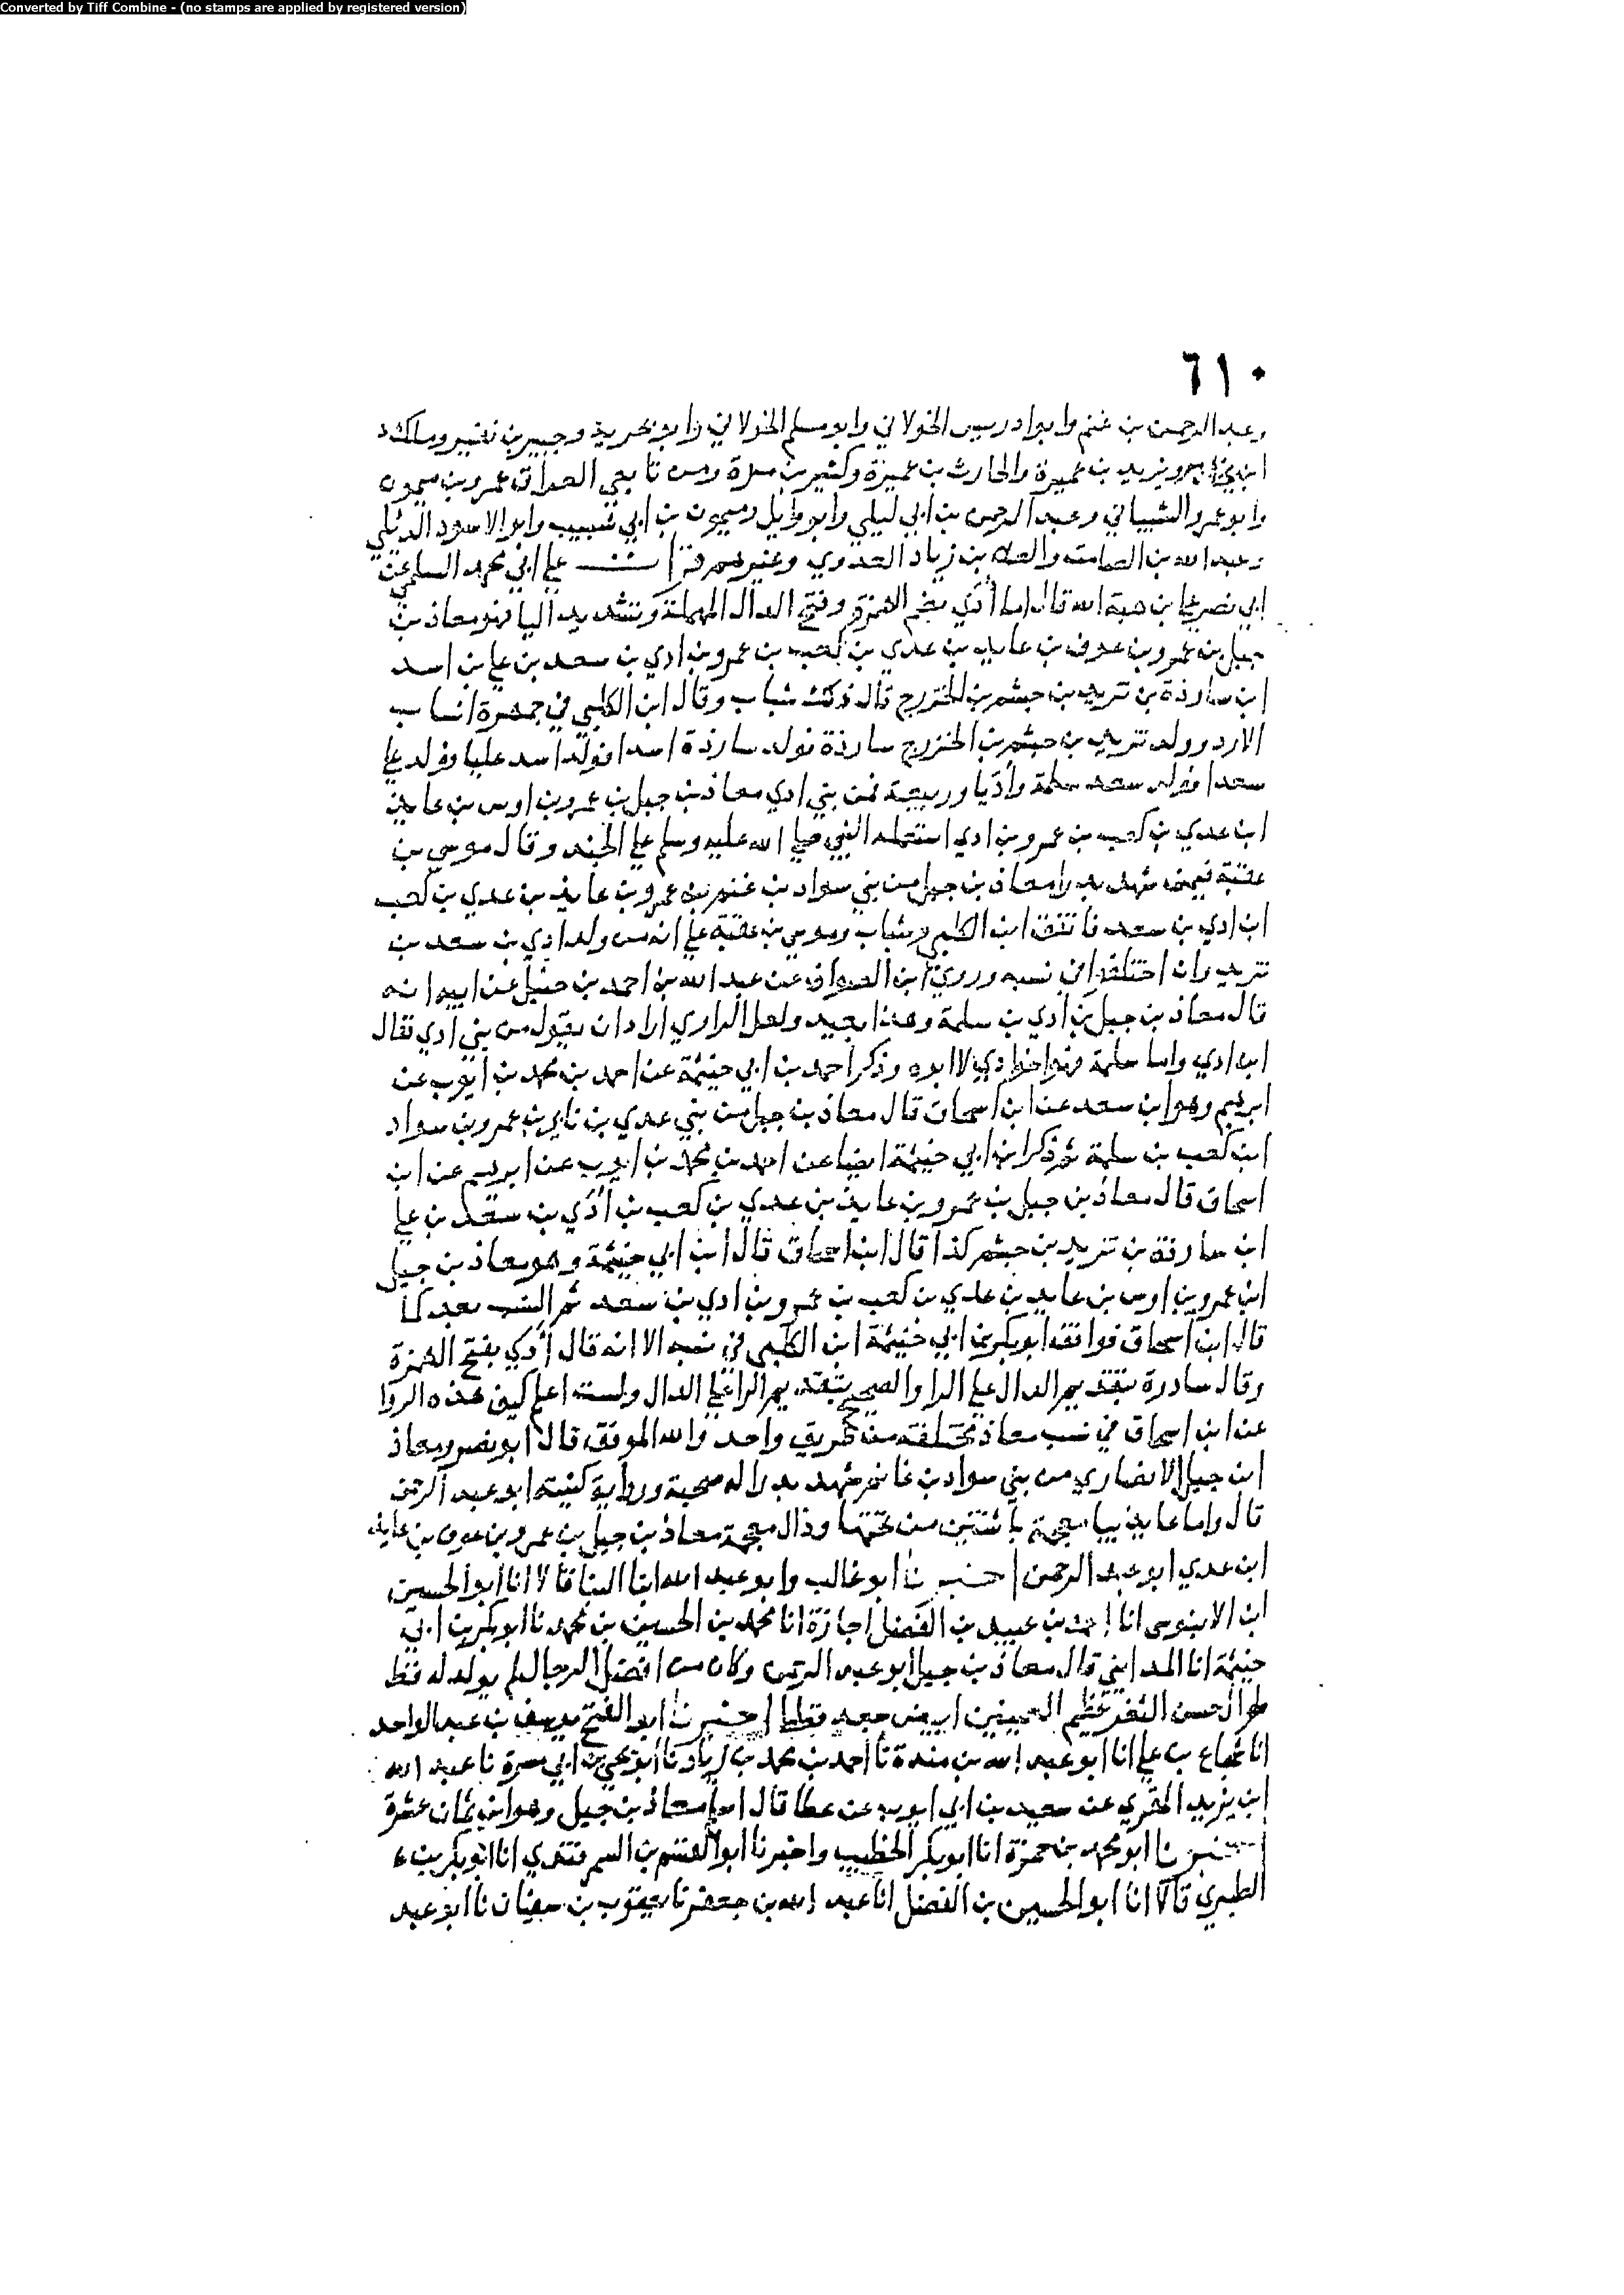 Converted by Tiff Combine - (no stamps are applied by registered version)
٦١٠
وعبد الرحمن بن غنم وابو ادريس الخولاني وابو مسلم الخولاني وابو بحرية وجبير بن نفير ومالك
ابن يخامر ويزيد بن عميرة والحارث بن عميرة وكثير بن مرة ومن تابعي العراق عمرو بن ميمون
وابو عمرو الشيباني وعبد الرحمن بن ابي ليلي وابو وايل وميمون بن ابي شبيب وابو الاسود الديلي
وعبد الله بن الصامت والعلا بن زياد العدوي وغيرهم قرات علي ابي محمد السلمي عن
ابي نصر علي بن هبة الله قال اما أُدَي بضم الهمزة وفتح الدال المهملة وتشديد اليا فهو معاذ بن
جبل بن عمرو بن عوف بن عايذ بن عدي بن كعب بن عمرو بن ادي بن سعد بن علي بن اسد
ابن ساردة بن تزيد بن جشم بن الخزرج قال ذلك شباب وقال ابن الكلبي في جمهرة انساب
الازد وولد تزيد بن جشم بن الخزرج ساردة فولد ساردة اسدا فولد اسد عليا فولد علي
سعدا فولد سعد سلمة وأُدَيا وربيعة فمن بني ادي معاذ بن جبل بن عمرو بن اوس بن عايذ
ابن عدي بن كعب بن عمرو بن ادي استعمله النبي صلي الله عليه وسلم علي الجند وقال موسي بن
عقبة فيمن شهد بدرا معاذ بن جبل من بني سواد بن غنم بن عمرو بن عايذ بن عدي بن كعب
ابن ادي بن سعد فاتفق ابن الكلبي وشباب وموسي بن عقبة علي انه من ولد ادي بن سعد بن
تزيد وان اختلفوا في نسبه وروي ابن الصواف عن عبد الله بن احمد بن حنبل عن ابيه انه
قال معاذ بن جبل بن ادي بن سلمة وهذا بعيد ولعل الراوي اراد ان يقول من بني ادي فقال
ابن ادي واما سلمة فهو اخو ادي لا ابوه وذكر احمد بن ابي خيثمة عن احمد بن محمد بن ايوب عن
ابرهيم وهو ابن سعد عن ابن اسحاق قال معاذ بن جبل من بني عدي بن نابي بن عمرو بن سواد
ابن كعب بن سلمة ثم ذكر ابن ابي خيثمة ايضا عن احمد بن محمد بن ايوب عن ابرهيم عن ابن
اسحاق قال معاذ بن جبل بن عمرو بن عايذ بن عدي بن كعب بن أُدَي بن سعد بن علي
ابن ساردة بن تزيد بن جشم كذا قال ابن اسحاق قال ابن ابي خيثمة وهو معاذ بن جبل
ابن عمرو بن اوس بن عايذ بن عدي بن كعب بن عمرو بن ادي بن سعد ثم النسب بعد كما
قال ابن اسحاق فوافقه ابو بكر بن ابي خيثمة ابن الكلبي في نسبه الا انه قال أَدَي بفتح الهمزة
وقال سادرة بتقديم الدال علي الرا والصحيح بتقديم الرا علي الدال ولست اعلم كيف هذه الروا
عن ابن اسحاق في نسب معاذ مختلفة من طريق واحد والله الموفق قال ابو نصر ومعاذ
ابن جبل الانصاري من بني سواد بن غانم شهد بدرا له صحبة ورواية كنيته ابو عبد الرحمن
قال واما عايذ بيا معجمة باثنتين من تحتها وذال معجمة معاذ بن جبل بن عمرو بن عوف بن عايذ
ابن عدي ابو عبد الرحمن اخبرنا ابو غالب وابو عبد الله ابنا البنا قالا انا ابو الحسين
ابن الابنوسي انا احمد بن عبيد بن الفضل اجازة انا محمد بن الحسين بن محمد نا ابو بكر بن ابي
خيثمة انا المدايني قال معاذ بن جبل ابو عبد الرحمن وكان من افضل الرجال لم يولد له قط
طوال حسن الثغر عظيم العينين ابيض جعد قطط اخبرنا ابو الفتح يوسف بن عبد الواحد
انا شجاع بن علي انا ابو عبد الله بن مندة نا احمد بن محمد بن زياد نا ابو يحيي بن ابي مسرة نا عبد الله
ابن يزيد المقري عن سعيد بن ابي ايوب عن عطا قال اسلم معاذ بن جبل وهو ابن ثمان عشرة
اخبرنا ابو محمد بن حمزة انا ابو بكر الخطيب واخبرنا ابو القسم بن السمرقندي انا ابو بكر بن
الطبري قالا انا ابو الحسين بن الفضل انا عبد الله بن جعفر نا يعقوب بن سفيان نا ابو عبد